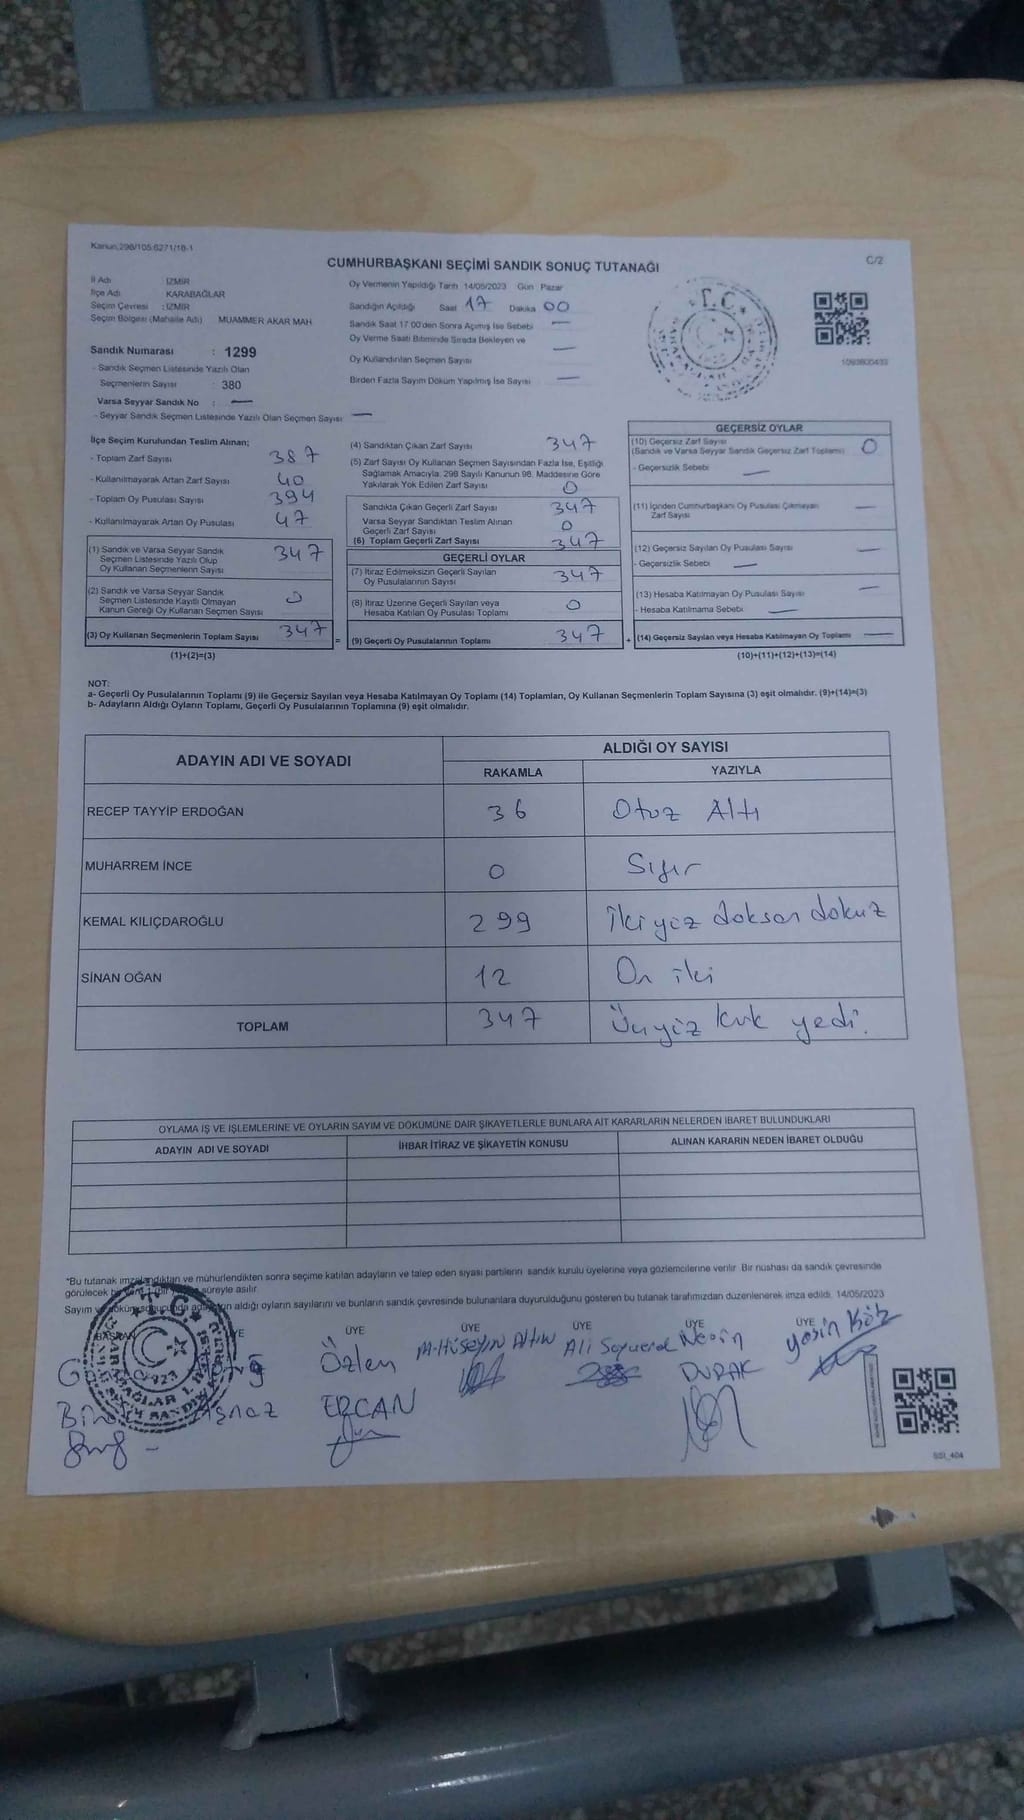 Kanun,298/105:6271/18-1
C/2
CUMHURBAŞKANI SEÇİMİ SANDIK SONUÇ TUTANAĞI
İl Adı : İZMİR
İlçe Adı KARABAĞLAR
Seçim Çevresi : İZMİR
Seçim Bölgesi (Mahalle Adı) MUAMMER AKAR MAH
Sandık Numarası : 1299
- Sandık Seçmen Listesinde Yazılı Olan
Seçmenlerin Sayısı : 380
Varsa Seyyar Sandık No : —
- Seyyar Sandık Seçmen Listesinde Yazılı Olan Seçmen Sayısı —
Oy Vermenin Yapıldığı Tarih 14/05/2023 Gün Pazar
Sandığın Açıldığı Saat 17 Dakika 00
Sandık Saat 17:00'den Sonra Açımış İse Sebebi —
Oy Verme Saati Bitiminde Sırada Bekleyen ve —
Oy Kullandırılan Seçmen Sayısı
Birden Fazla Sayım Döküm Yapılmış İse Sayısı —
1093800433
İlçe Seçim Kurulundan Teslim Alınan;
- Toplam Zarf Sayısı 387
- Kullanılmayarak Artan Zarf Sayısı 40
- Toplam Oy Pusulası Sayısı 394
- Kullanılmayarak Artan Oy Pusulası 47
(1) Sandık ve Varsa Seyyar Sandık 347
Seçmen Listesinde Yazılı Olup
Oy Kullanan Seçmenlerin Sayısı
(2) Sandık ve Varsa Seyyar Sandık
Seçmen Listesinde Kayıtlı Olmayan 0
Kanun Gereği Oy Kullanan Seçmen Sayısı
(3) Oy Kullanan Seçmenlerin Toplam Sayısı 347
(1)+(2)=(3)
(4) Sandıktan Çıkan Zarf Sayısı 347
(5) Zarf Sayısı Oy Kullanan Seçmen Sayısından Fazla İse, Eşitliği
Sağlamak Amacıyla, 298 Sayılı Kanunun 98. Maddesine Göre
Yakılarak Yok Edilen Zarf Sayısı 0
Sandıkta Çıkan Geçerli Zarf Sayısı 347
Varsa Seyyar Sandıktan Teslim Alınan
Geçerli Zarf Sayısı 0
(6) Toplam Geçerli Zarf Sayısı 347
GEÇERLİ OYLAR
(7) İtiraz Edilmeksizin Geçerli Sayılan 347
Oy Pusulalarının Sayısı
(8) İtiraz Üzerine Geçerli Sayılan veya 0
Hesaba Katılan Oy Pusulası Toplamı
= (9) Geçerli Oy Pusulalarının Toplamı 347
GEÇERSİZ OYLAR
(10) Geçersiz Zarf Sayısı 0
(Sandık ve Varsa Seyyar Sandık Geçersiz Zarf Toplamı)
- Geçersizlik Sebebi —
(11) İçinden Cumhurbaşkanı Oy Pusulası Çıkmayan —
Zarf Sayısı
(12) Geçersiz Sayılan Oy Pusulası Sayısı —
- Geçersizlik Sebebi —
(13) Hesaba Katılmayan Oy Pusulası Sayısı —
- Hesaba Katılmama Sebebi —
+ (14) Geçersiz Sayılan veya Hesaba Katılmayan Oy Toplamı —
(10)+(11)+(12)+(13)=(14)
NOT:
a- Geçerli Oy Pusulalarının Toplamı (9) ile Geçersiz Sayılan veya Hesaba Katılmayan Oy Toplamı (14) Toplamları, Oy Kullanan Seçmenlerin Toplam Sayısına (3) eşit olmalıdır. (9)+(14)=(3)
b- Adayların Aldığı Oyların Toplamı, Geçerli Oy Pusulalarının Toplamına (9) eşit olmalıdır.
ADAYIN ADI VE SOYADI ALDIĞI OY SAYISI
RAKAMLA YAZIYLA
RECEP TAYYİP ERDOĞAN 36 Otuz Altı
MUHARREM İNCE 0 Sıfır
KEMAL KILIÇDAROĞLU 299 İkiyüz doksan dokuz
SİNAN OĞAN 12 On iki
TOPLAM 347 Üçyüz kırk yedi.
OYLAMA İŞ VE İŞLEMLERİNE VE OYLARIN SAYIM VE DÖKÜMÜNE DAİR ŞİKAYETLERLE BUNLARA AİT KARARLARIN NELERDEN İBARET BULUNDUKLARI
ADAYIN ADI VE SOYADI İHBAR İTİRAZ VE ŞİKAYETİN KONUSU ALINAN KARARIN NEDEN İBARET OLDUĞU
*Bu tutanak imzalandıktan ve mühürlendikten sonra seçime katılan adayların ve talep eden siyasi partilerin sandık kurulu üyelerine veya gözlemcilerine verilir. Bir nüshası da sandık çevresinde
görülecek bir süreyle asılır.
Sayım ve döküm sonucunda adayların aldığı oyların sayılarını ve bunların sandık çevresinde bulunanlara duyurulduğunu gösteren bu tutanak tarafımızdan düzenlenerek imza edildi. 14/05/2023
BAŞKAN ÜYE ÜYE ÜYE ÜYE ÜYE
Özlen M.Hüseyin Altın Ali Nesin Yasin Köz
ERCAN DURAK
T.C.
1923
SSI_404